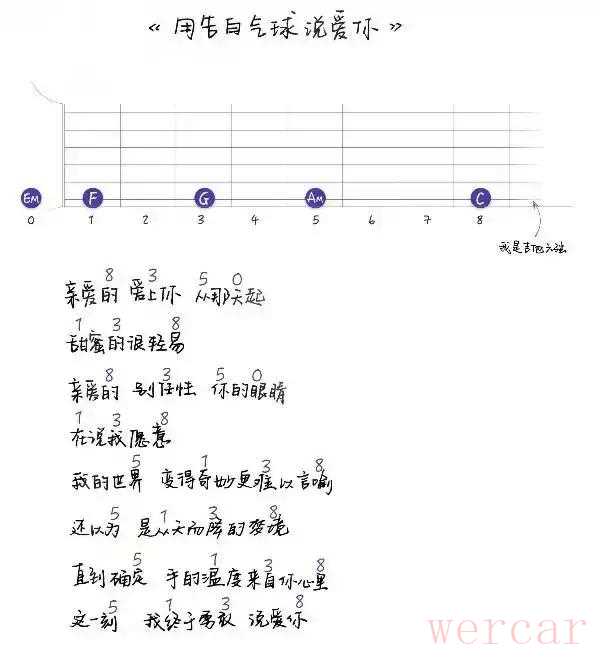 《用告白气球说爱你》
EM F G AM C
0 1 2 3 4 5 6 7 8
我是吉他六弦
8 3 5 0
亲爱的 爱上你 从那天起
1 3 8
甜蜜的很轻易
8 3 5 0
亲爱的 别任性 你的眼睛
1 3 8
在说我愿意
5 1 3 8
我的世界 变得奇妙更难以言喻
5 1 3 8
还以为 是从天而降的梦境
5 1 3 8
直到确定 手的温度来自你心里
5 1 3 8
这一刻 我终于勇敢 说爱你
wercar